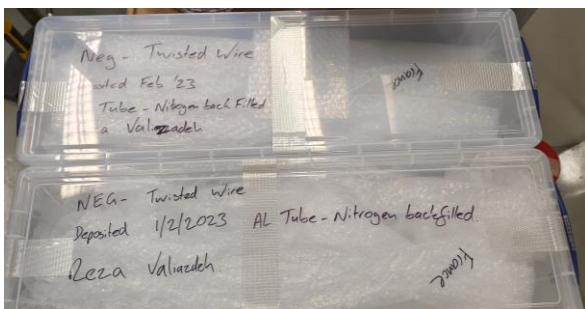 Neg - Twisted Wire
Feb '23
Tube - Nitrogen back Filled
a Valiazadeh
France
NEG- Twisted Wire
Deposited 1/2/2023 AL Tube - Nitrogen backfilled.
Reza Valiazdeh
France